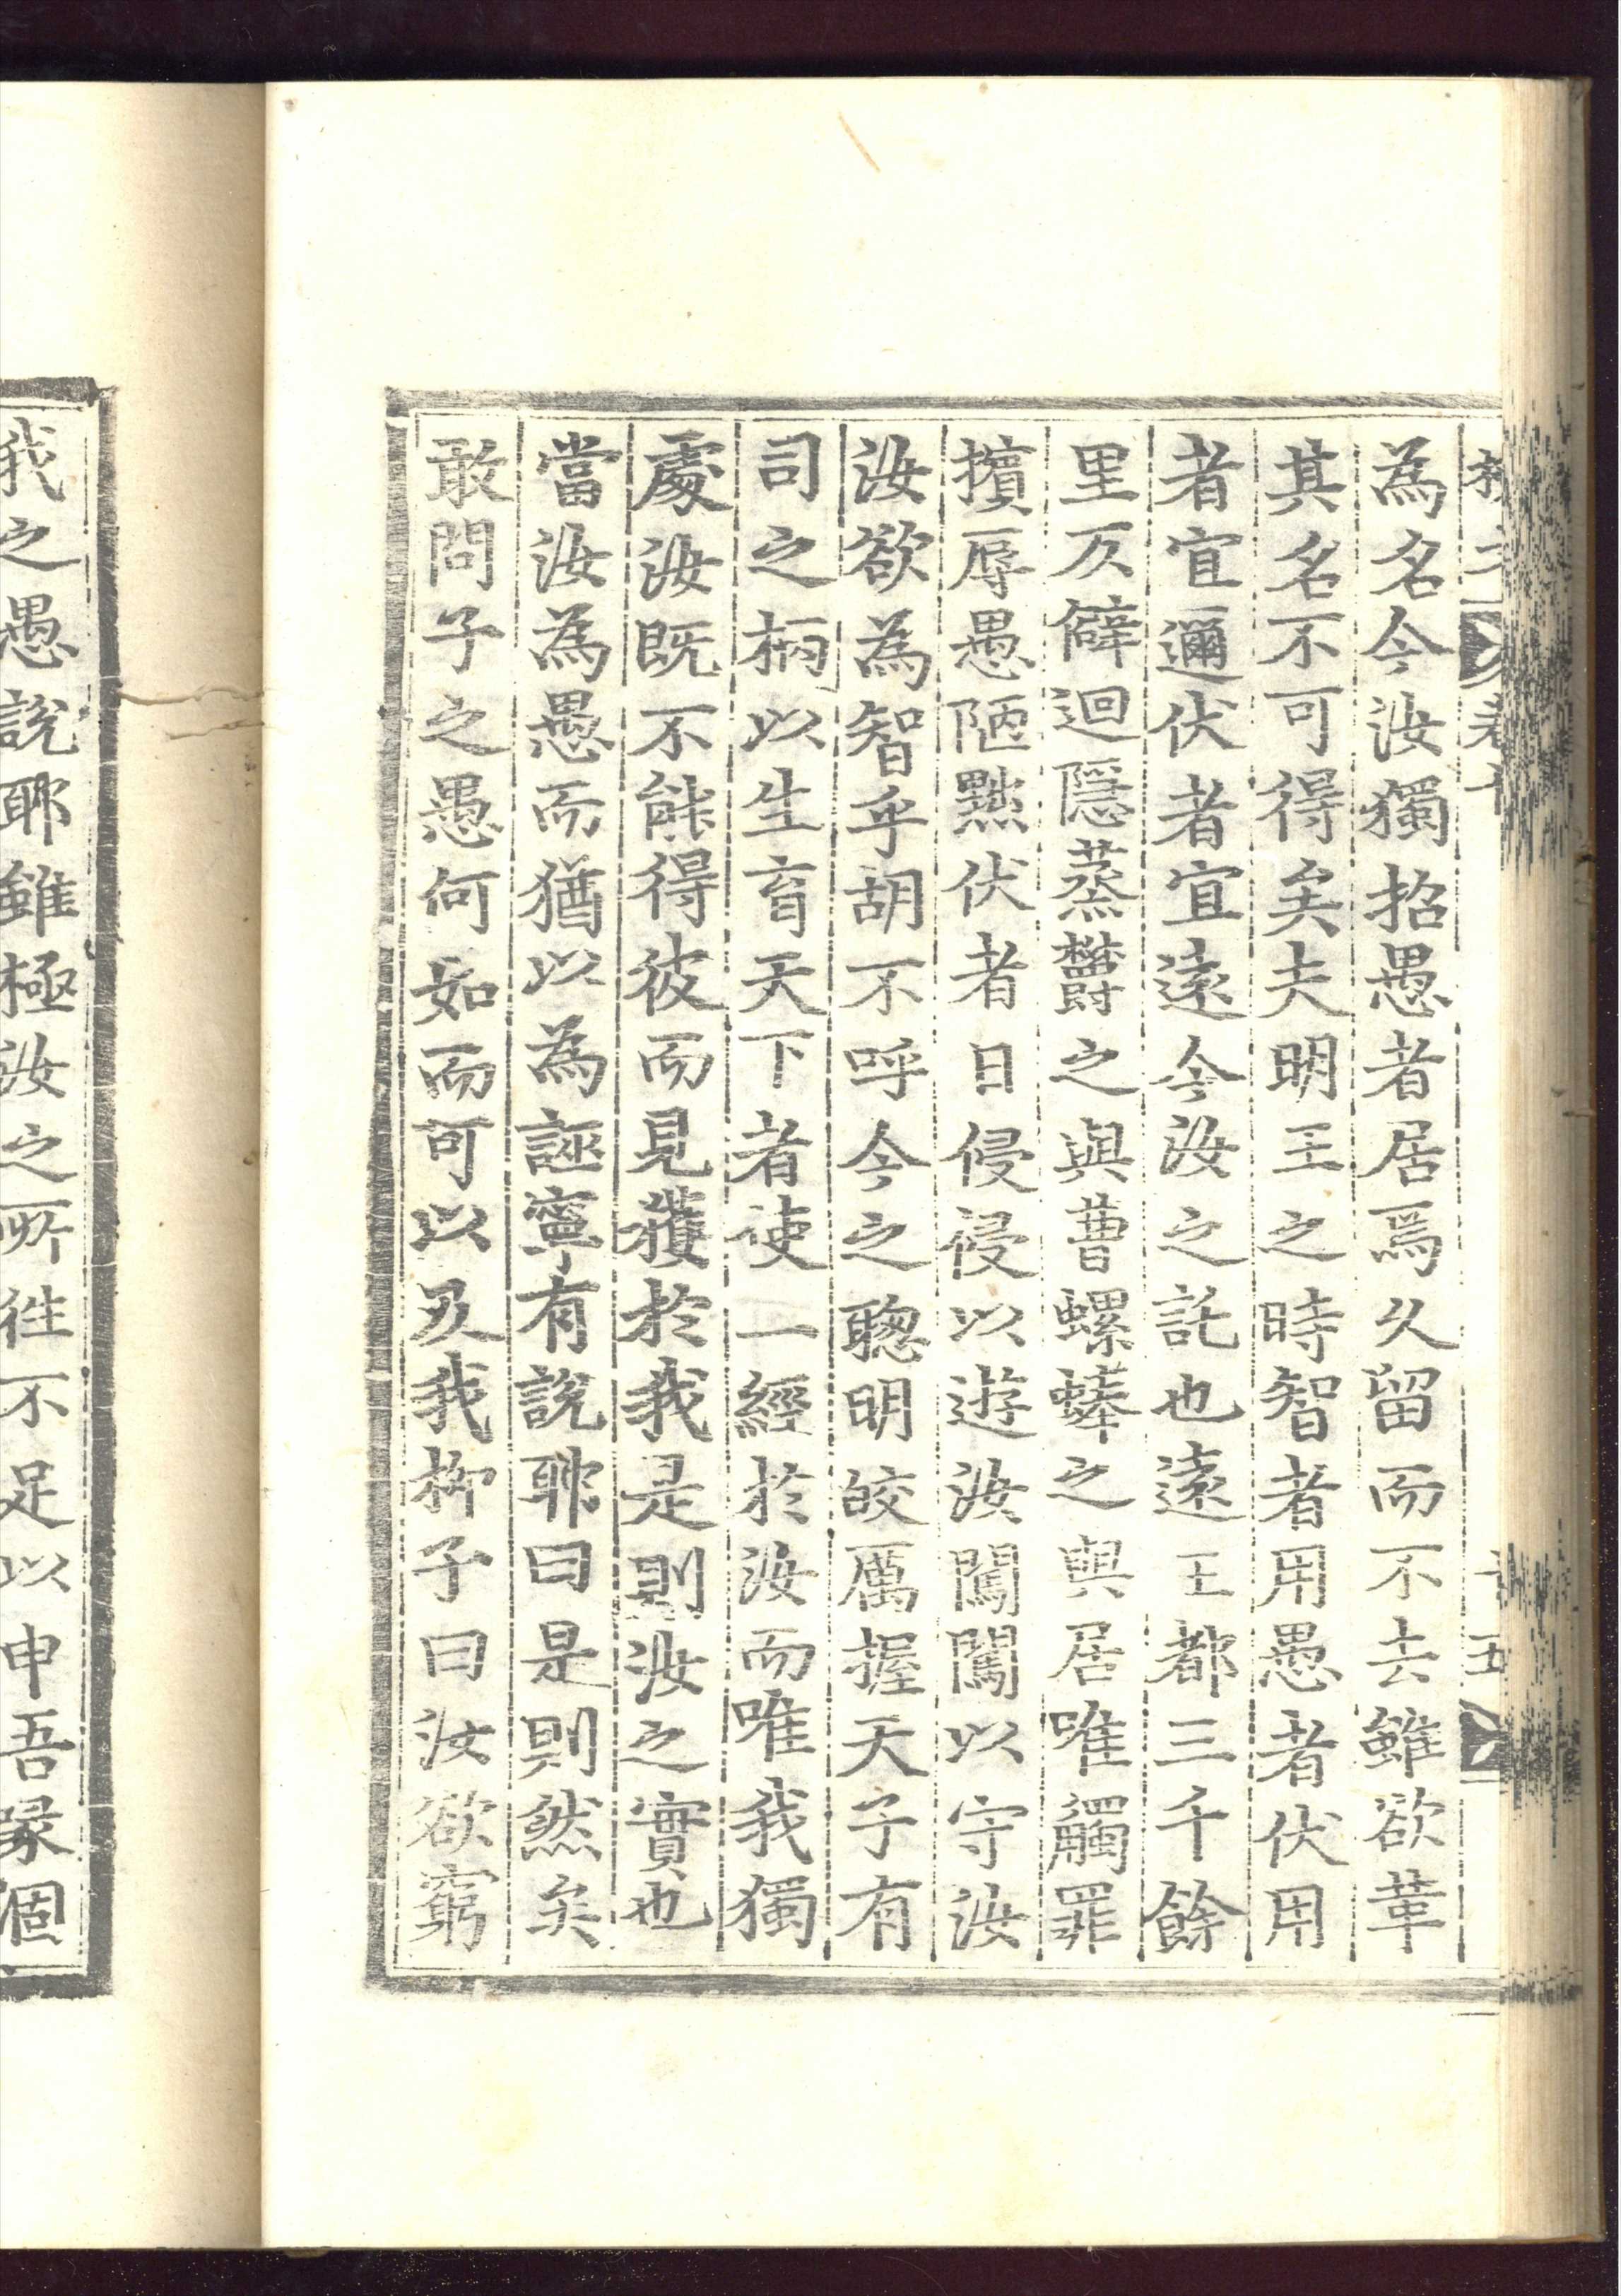 為名今汝獨招愚者居焉久留而不去雖欲革
其名不可得矣夫明王之時智者用愚者伏用
者宜邇伏者宜遠今汝之託也遠王都三千餘
里仄僻迴隱蒸鬱之與曹螺蜯之與居唯觸罪
擯辱愚陋黜伏者日侵侵以遊汝闖闖以守汝
汝欲為智乎胡不呼今之聦明皎厲握天子有
司之柄以生育天下者使一經於汝而唯我獨
處汝既不能得彼而見獲於我是則汝之實也
當汝為愚而猶以為誣寧有說耶曰是則然矣
敢問子之愚何如而可以及我柳子曰汝欲窮
我之愚說耶雖極汝之所往不足以申吾喙涸